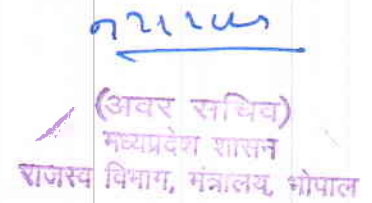 (अवर सचिव)
मध्यप्रदेश शासन
राजस्व विभाग, मंत्रालय, भोपाल